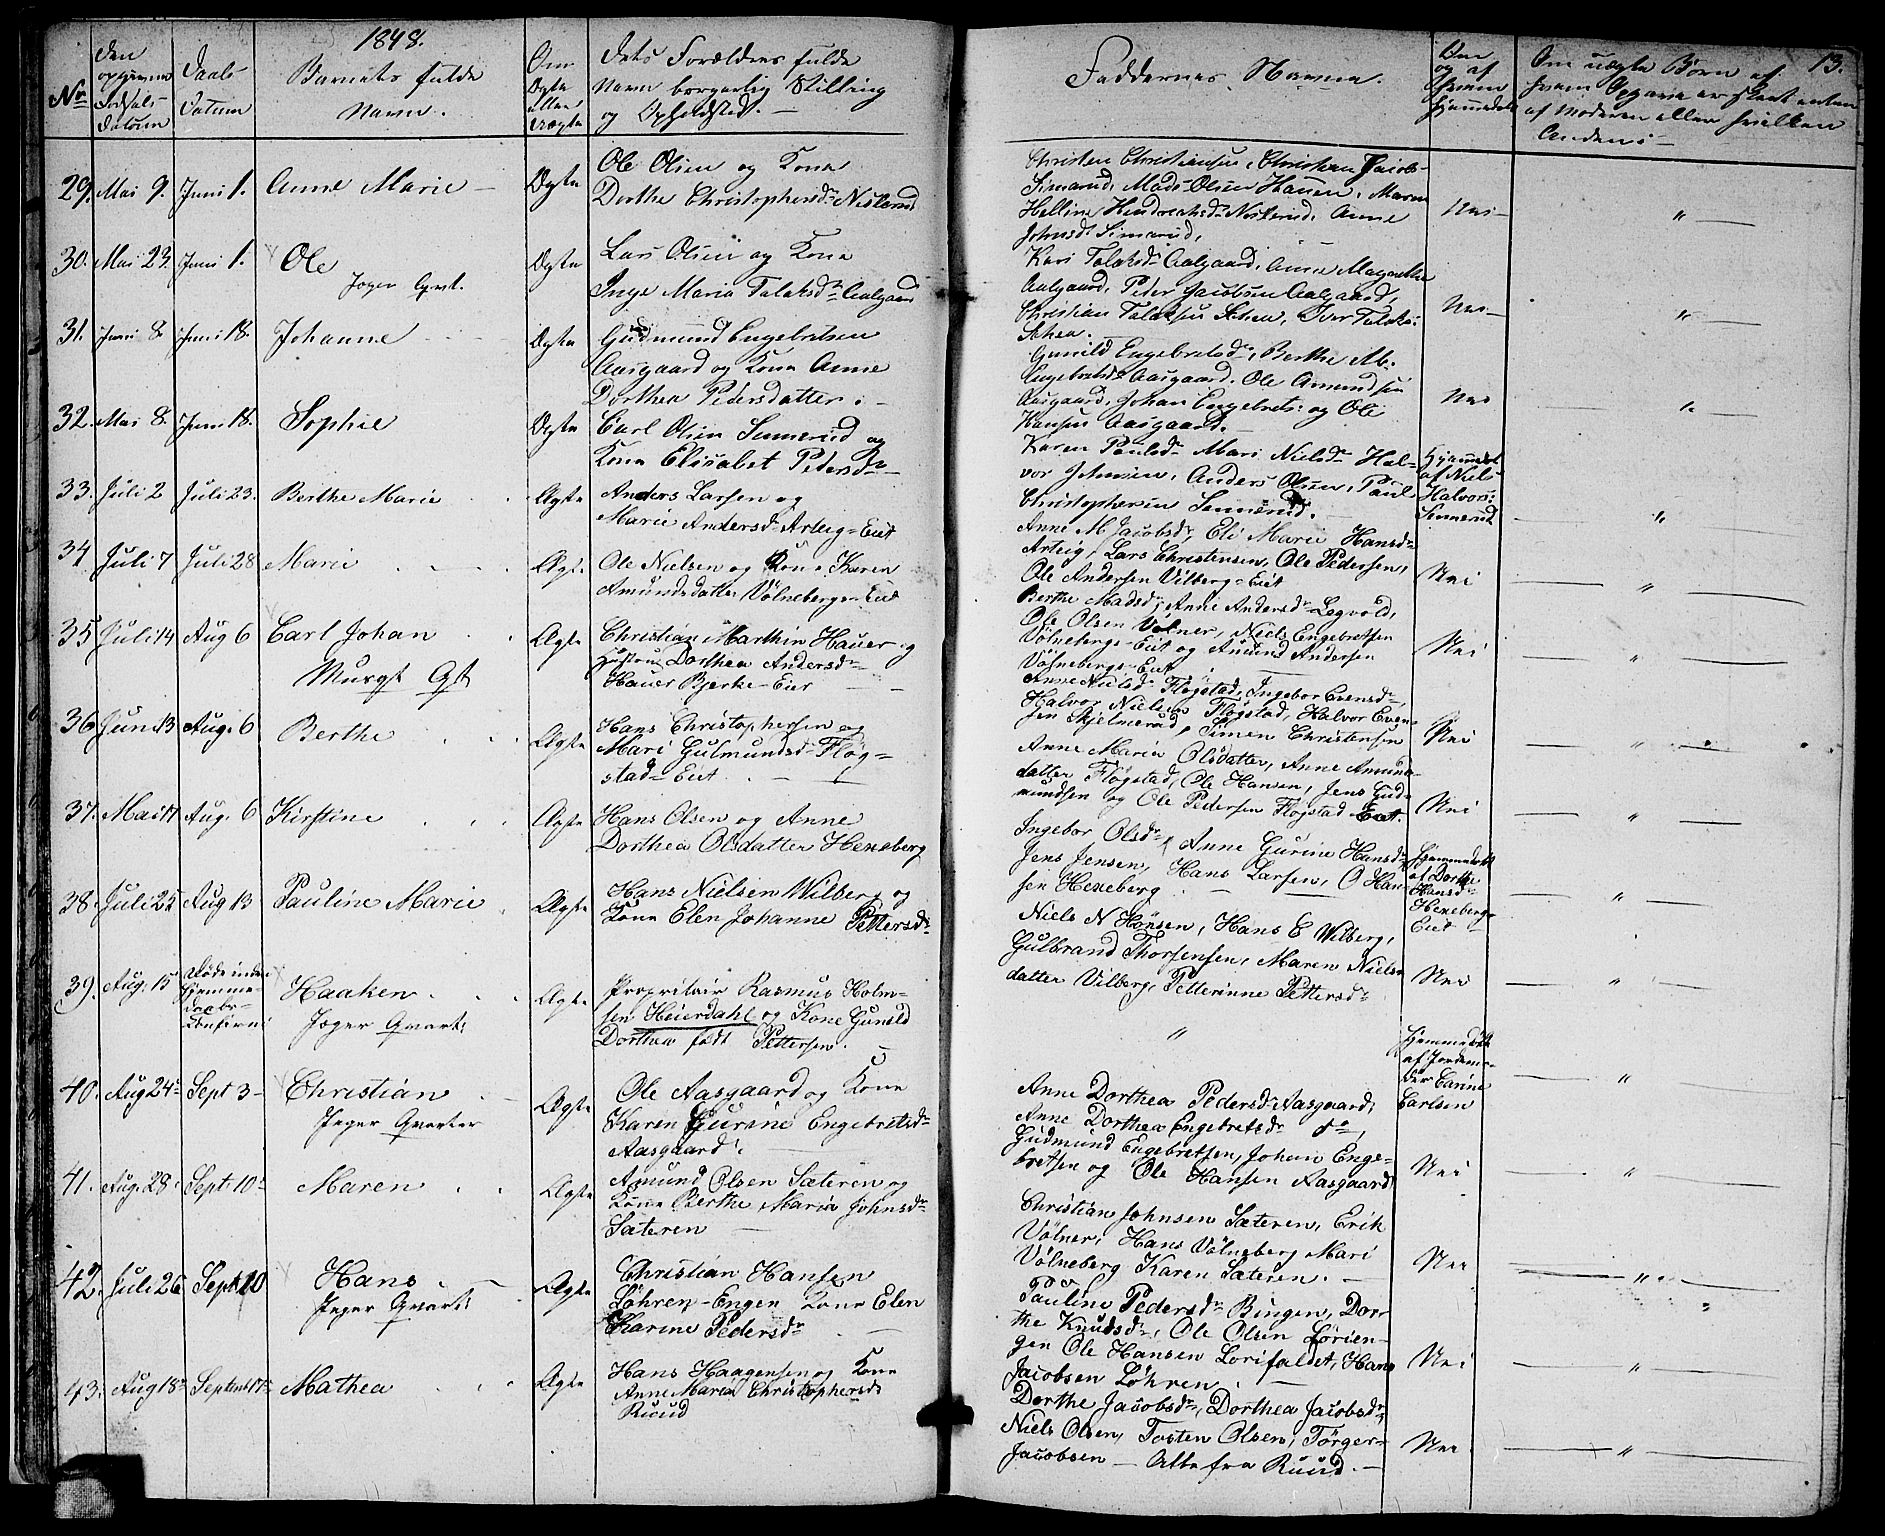 1848.
13.
No
Den
Daabs
Datum
Barnets fulde
Navn.
Om
Ægte
eller
Uægte
Dets Forældres fulde
Navn borgerlig Stilling
og Opholdsted.
Faddernes Navne.
Om og af
Hvem
hjemmedøbt
Om uægte Børn af
af Moderen eller hvilken
Anden
29. Mai 9. Juni 1. Anne Marie Ægte
Ole Olsen og Kone
Dorthe Christophersdr
Christen Christiansen, Christian Jacob-
Mads Olsen Hauen, Maren
Helline Anne
Nei
30. Mai 23. Juni 1. Ole Ægte
Lars Olsen og Kone
Inge Maria Talaksdr Aalgaard
Kari Talaksdr Aalgaard, Anne Magrethe
Aalgaard, Peder Jacobsen Aalgaard,
Christian Talaksen
Nei
31. Juni 8. Juni 18. Johanne Ægte
Gudmund Engebretsen
Aasgaard og Kone Anne
Dorthea Pedersdatter
Gunild Engebretsdr, Berthe M.
Engebretsdr Aasgaard, Ole Amundsen
Aasgaard, Johan Engebrets: og Ole
Hansen Aasgaard.
Nei
32. Mai 8. Juni 18. Sophie Ægte
Carl Olsen Sennerud og
Kone Elisabet Pedersdr
Karen Paulsdr Mari Nielsdr Hal-
vor Johnsen, Anders Olsen, Paul
Christophersen Sennerud.
Hjemmedøbt
af Niels
Halvors:
Sennerud
33. Juli 2 Juli 23. Berthe Marie Ægte
Anders Larsen og
Marie Andersdr Arteig-Eiet
Anne M Jacobsdr, Eli Marie Hansdr
Arteig, Lars Christensen, Ole Pedersen,
Ole Andersen Vilberg-Eiet
Nei
34. Juli 7 Juli 28 Marie Ægte
Ole Nielsen og Kone Karen
Amundsdatter Völneberg-Eiet
Berthe Madsdr, Anne Andersdr Legvold,
Ole Olsen Völner, Niels Engebretsen
Völneberg-Eiet og Amund Andersen
Völneberg-Eiet
Nei
35 Juli 14 Aug 6 Carl Johan Ægte
Christian Marthin Hauer og
Hustrue Dorthea Andersdr
Hauer Bjerke-Eier
Anne Nielsdr Flögstad, Ingebor Evensdr,
Halvor Nielsen Flögstad, Halvor Even-
sen Skjelnerud, Simen Christensen
Nei
36 Juni 13 Aug. 6 Berthe Ægte
Hans Christophersen og
Mari Gulmundsdr Flög-
stad-Eiet
Anne Maria Olsdatter, Anne Amunds
datter Flögstad, Ole Hansen, Jens Gud-
mundsen og Ole Pedersen Flögstad Eiet.
Nei
37. Mai 17 Aug. 6 Kirstine Ægte
Hans Olsen og Anne
Dorthea Olsdatter Hexeberg
Ingebor Olsdr, Anne Gurine Hansdr
Jens Jensen, Hans Larsen, O Han-
sen Hexeberg
Hjemmedøbt
af Dorthe
Hansdr
Hexeberg-
Eiet
38. Juli 25 Aug 13 Pauline Marie Ægte
Hans Nielsen Wilberg og
Kone Elen Johanne Pettersdr
Niels N Hönsen, Hans E Wilberg,
Gulbrand Thorsensen, Maren Niels
datter Vilberg, Petterinne Pettersdr
Nei
39. Aug. 15 Døde inden
Hjemme-
daabs-
Haaken Ægte
Jæger Qvart:
Proprietair Rasmus Holm-
sen Heierdahl og Kone Gunild
Dorthea født Pettersen.
Hjemmedöbt
af Jordemo-
der Carine
Carlsen
40. Aug 24 Sept 3 Christian Ægte
Jæger Qvarter
Ole Aasgaard og Kone
Karen Gurine Engebretsdr
Aasgaard
Anne Dorthea Pedersdr Aasgaard,
Anne Dorthea Engebretsdr do,
Gudmund Engebretsen, Johan Enge-
bretsen og Ole Hansen Aasgaard
Nei
41. Aug. 28 Sept 10 Maren Ægte
Amund Olsen Sæteren og
Kone Berthe Maria Johnsdr
Sæteren
Christian Johnsen Sæteren, Erik
Völner, Hans Völneberg Mari
Völneberg Karen Sæteren.
Nei
42. Juli 26 Sept 10 Hans Ægte
Jæger Qvart:
Christian Hansen
Löhren-Engen Kone Elen
Karine Pedersdr
Pauline Pedersdr Bingen, Dor-
the Knudsdr, Ole Olsen Lörien-
gen Ole Hansen Lorifaldet, Hans
Jacobsen Löhren
Nei
43. Aug 18 Septemb 17 Mathea Ægte
Hans Haagensen og Kone
Anne Maria Christophersdr
Ruud
Dorthe Jacobsdr, Dorthea Jacobsdr,
Niels Olsen, Tosten Olsen, Törger
Jacobsen — Alle fra Ruud.
Nei